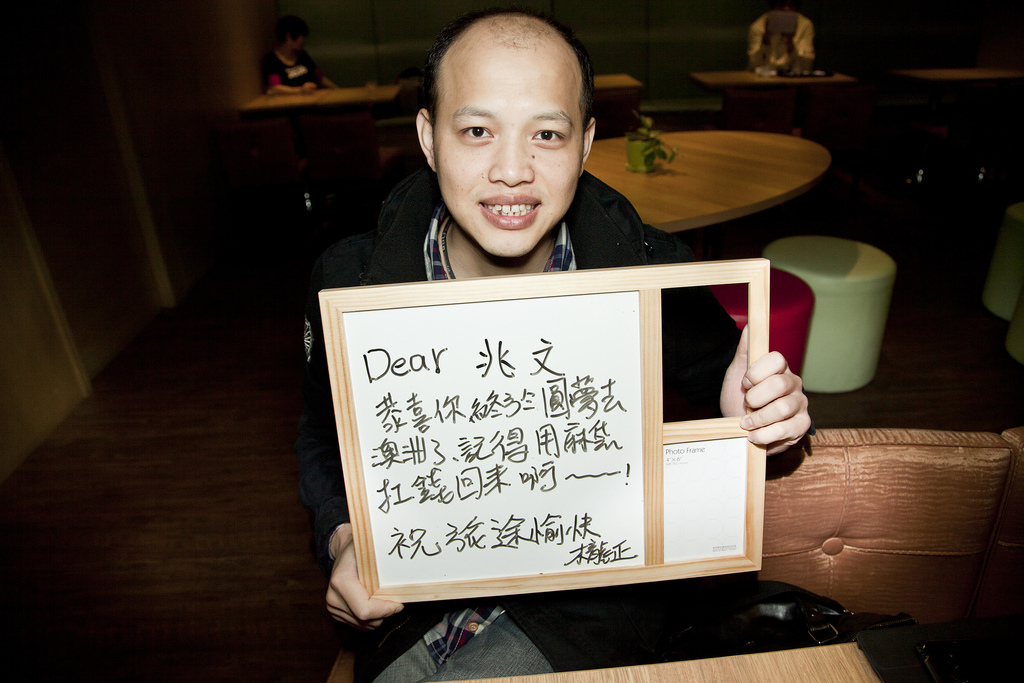 Dear 兆文
恭喜你終於圓夢去
澳洲了、記得用麻袋
扛錢回來啊~~!
祝,旅途愉快
Photo Frame